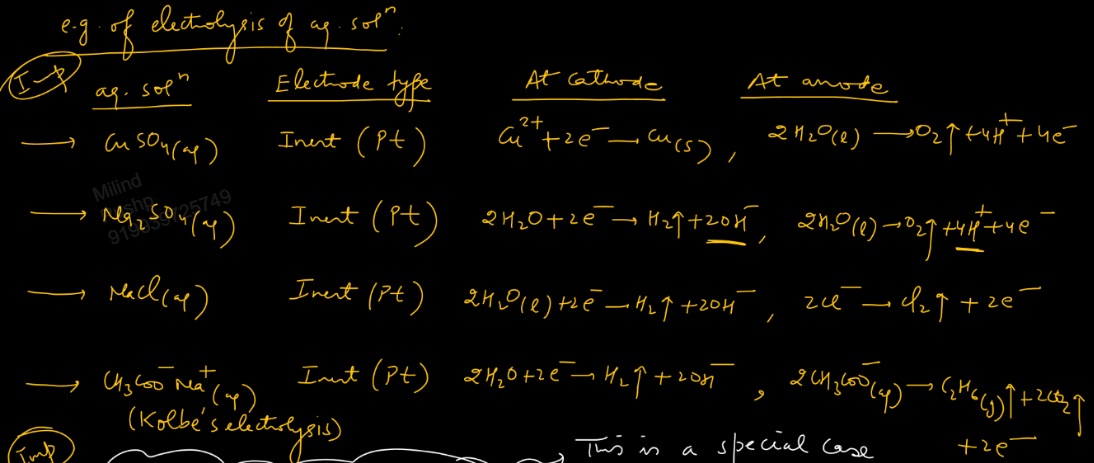 e.g. of electrolysis of aq. solⁿ.
Imp
aq. solⁿ Electrode type At Cathode At anode
→ CuSO₄(aq) Inert (Pt) Cu²⁺ + 2e⁻ → Cu(s) , 2H₂O(l) → O₂↑ + 4H⁺ + 4e⁻
→ Na₂SO₄(aq) Inert (Pt) 2H₂O + 2e⁻ → H₂↑ + 2OH⁻ , 2H₂O(l) → O₂↑ + 4H⁺ + 4e⁻
→ NaCl(aq) Inert (Pt) 2H₂O(l) + 2e⁻ → H₂↑ + 2OH⁻ , 2Cl⁻ → Cl₂↑ + 2e⁻
→ CH₃COO⁻Na⁺(aq) Inert (Pt) 2H₂O + 2e⁻ → H₂↑ + 2OH⁻ , 2CH₃COO⁻(aq) → C₂H₆(g)↑ + 2CO₂↑
(Kolbe's electrolysis) + 2e⁻
Imp → This is a special case
Milind